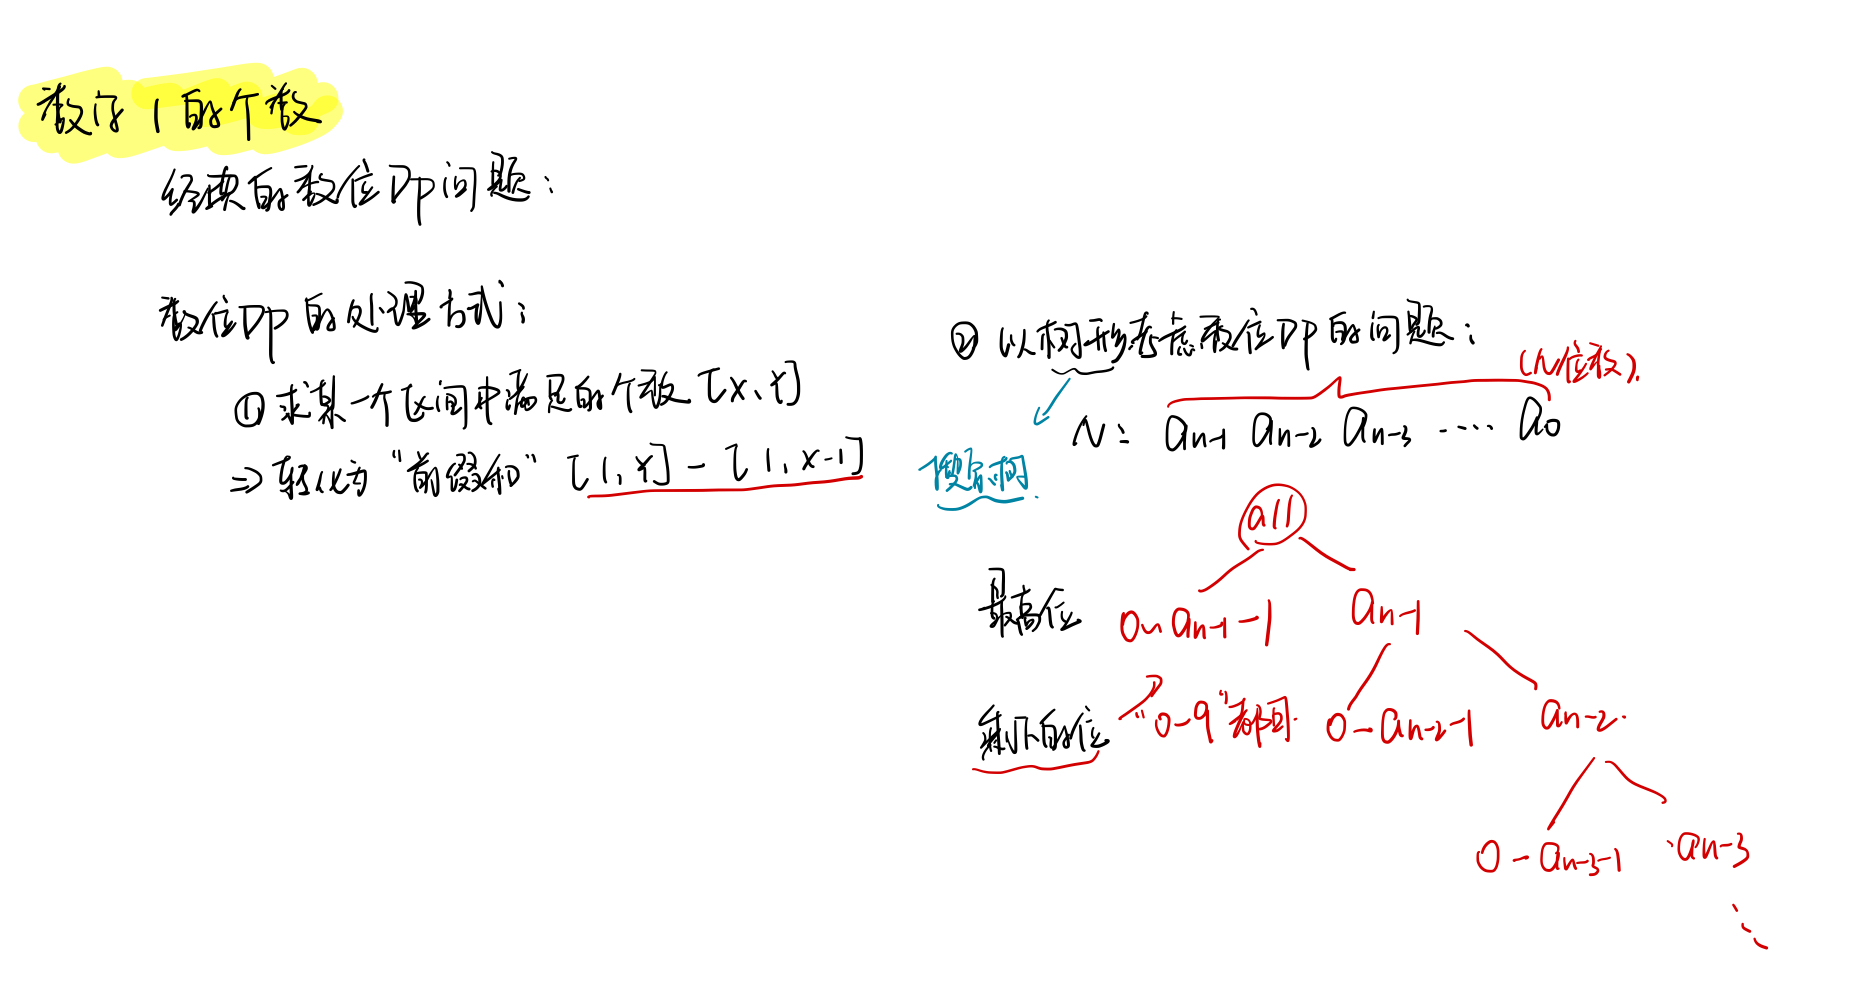 数字1的个数
经典的数位Dp问题：
数位Dp的处理方式：
① 求某一个区间中满足的个数 [x, Y]
⇒ 转化为 “前缀和” [1, Y] - [1, x-1]
② 以树形考虑数位DP的问题：
(N位数).
N： an-1 an-2 an-3 ····· a0
搜索树.
all
最高位 0~an-1-1 an-1
剩下的位 “0-9”都可. 0-an-2-1 an-2.
0-an-3-1 an-3